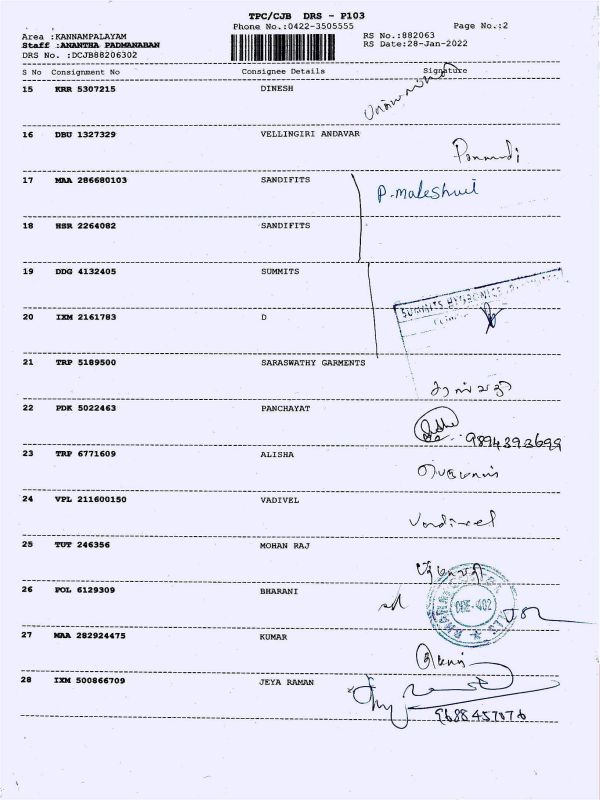 TPC/CJB DRS - P103
Phone No.:0422-3505555 Page No.:2
Area :KANNAMPALAYAM RS No.:882063
Staff :ANANTHA PADMANABAN RS Date:28-Jan-2022
DRS No. :DCJB88206302
S No Consignment No Consignee Details Signature
15 KRR 5307215 DINESH
16 DBU 1327329 VELLINGIRI ANDAVAR
17 MAA 286680103 SANDIFITS
P. maleshwil
18 HSR 2264082 SANDIFITS
19 DDG 4132405 SUMMITS
SUMMITS
20 IXM 2161783 D
21 TRP 5189500 SARASWATHY GARMENTS
22 PDK 5022463 PANCHAYAT
9894393699
23 TRP 6771609 ALISHA
24 VPL 211600150 VADIVEL
25 TUT 246356 MOHAN RAJ
26 POL 6129309 BHARANI
27 MAA 282924475 KUMAR
28 IXM 500866709 JEYA RAMAN
9688457076